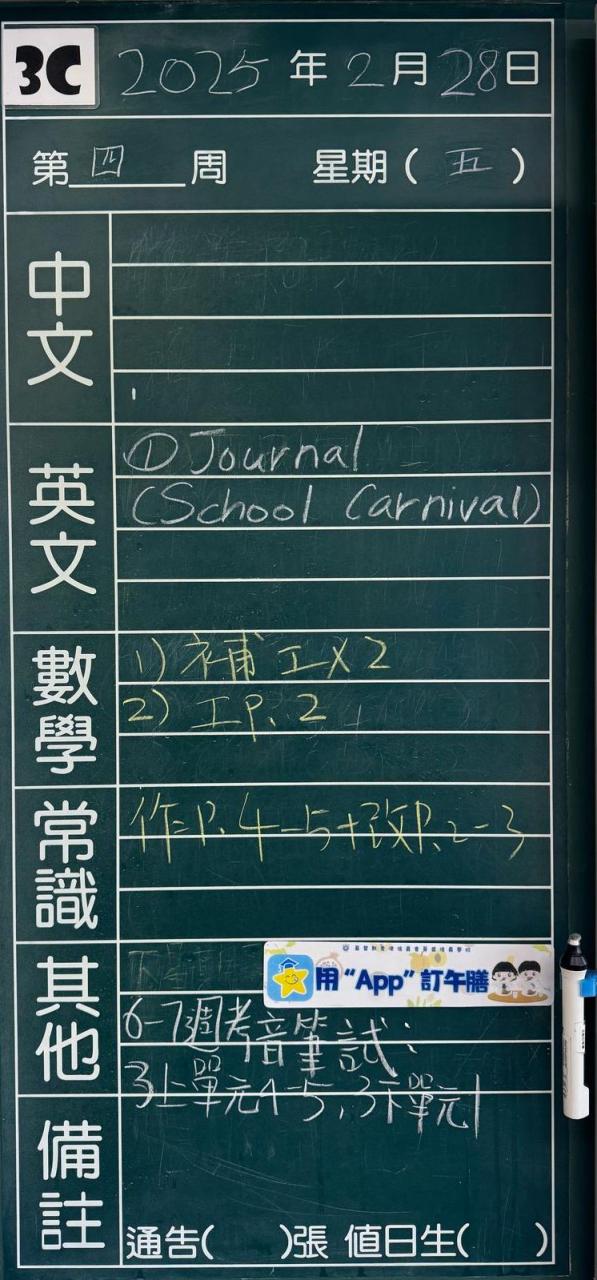 3C 2025年2月28日
第四周 星期(五)
中文
英文
①Journal
(School Carnival)
數學
1) 補工x2
2) 工P.2
常識
作P.4-5+改P.2-3
其他
用“App”訂午膳
6-7週考音筆試:
3上單元4-5,3下單元1
備註
通告( )張 值日生( )